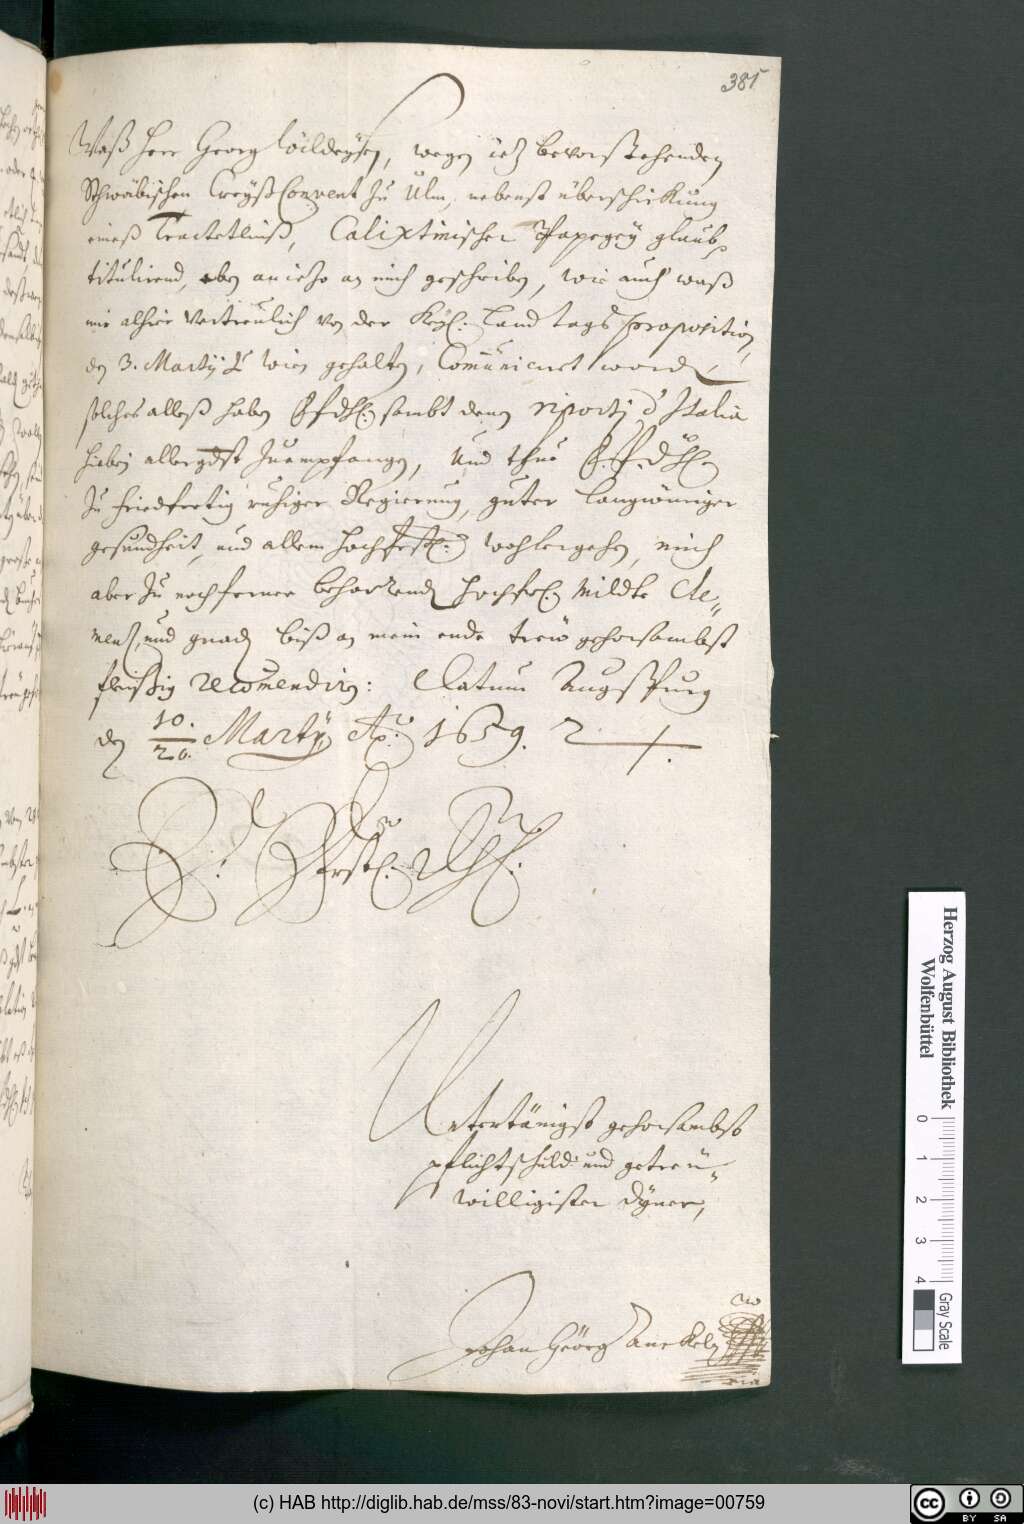 381
Waß herr Georg Wildeysen, wegen ietz bevorstehenden
Schwäbischen Creyß Convent zu Ulm, nebenst überschickung
eines Tractetleinß, Calixtinischer Papegey glaub
titulirend, eben anietzo an mich geschriben, wie auch waß
mir alhier vertreulich von der Kayl. Land tags proposition,
den 3. Martij zu Wien gehalten, Comuniciret worden,
solches alleß haben E. F. Dhl. sambt denen riporti d'Italia
hiebei allergdst zuempfangen, Und thue E. F. Dhl.
zu friedfertig ruhiger Regierung, guter langwüriger
gesundheit, und allem hochfrstl. wohlergehen, mich
aber zu noch ferner beharrenden hochfrl. Milden Cle-
mentz, und gnaden biß an mein ende treu gehorsambst
fleissig recomendiren: Datum Augspurg
den 10./20. Martij Ao. 1659.
E. Fürstl. Dhl.
Untertänigst gehorsambst
pflichtschuld: und getreu-
willigister dyner,
Johan Geörg Anckel
Herzog August Bibliothek
Wolfenbüttel
0 1 2 3 4
Gray Scale
(c) HAB http://diglib.hab.de/mss/83-novi/start.htm?image=00759
CC BY SA